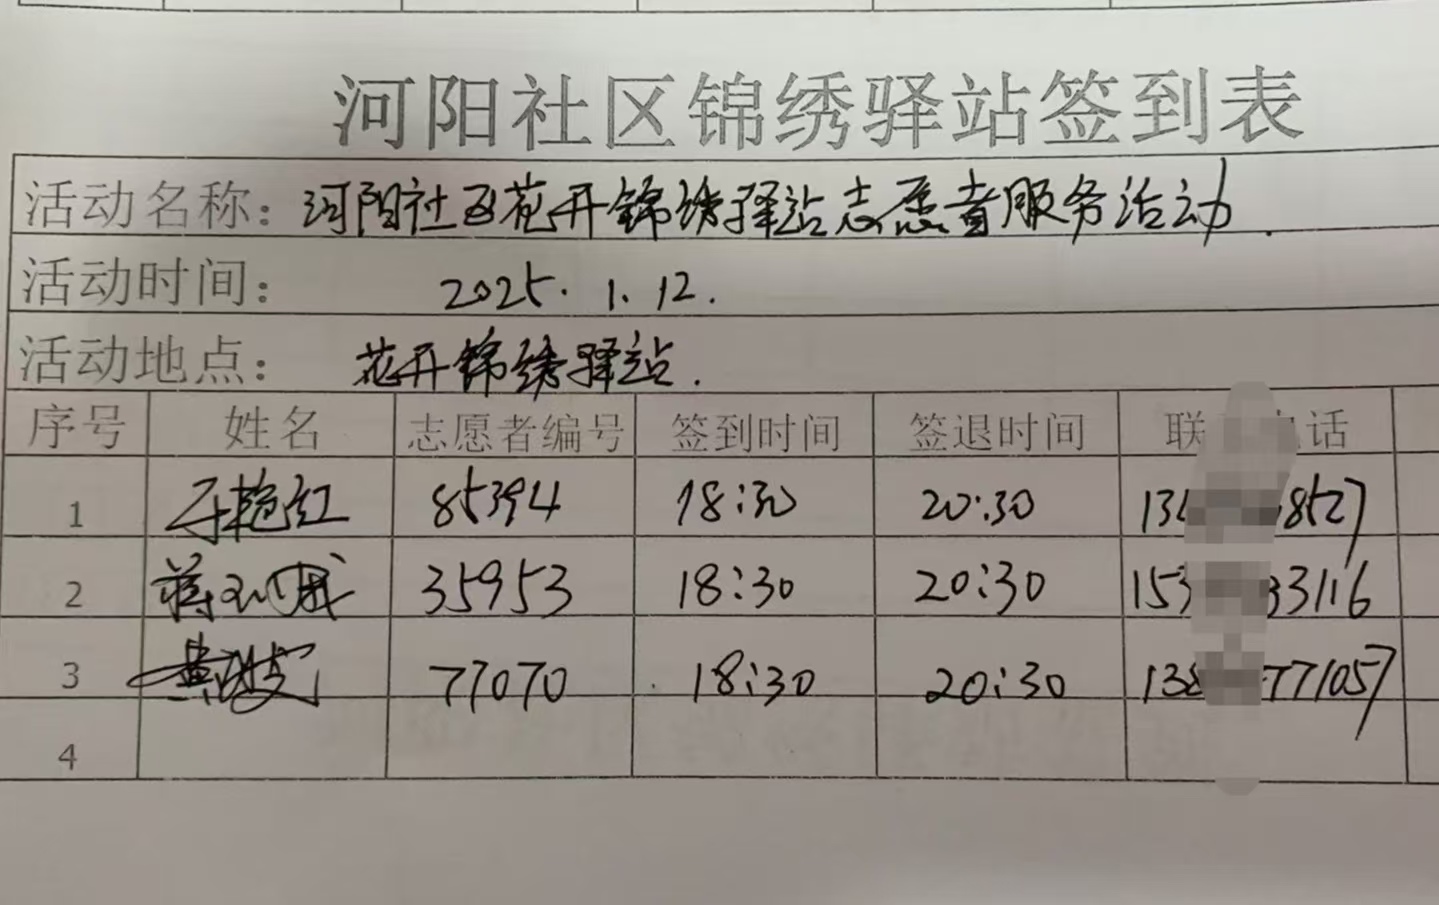 河阳社区锦绣驿站签到表
活动名称：河阳社区花开锦绣驿站志愿者服务活动.
活动时间： 2025.1.12.
活动地点： 花开锦绣驿站.
序号 姓名 志愿者编号 签到时间 签退时间 联 电话
1 于艳红 85394 18:30 20:30 13 8527
2 蒋 成 35953 18:30 20:30 153 33116
3 黄 77070 18:30 20:30 138 771057
4